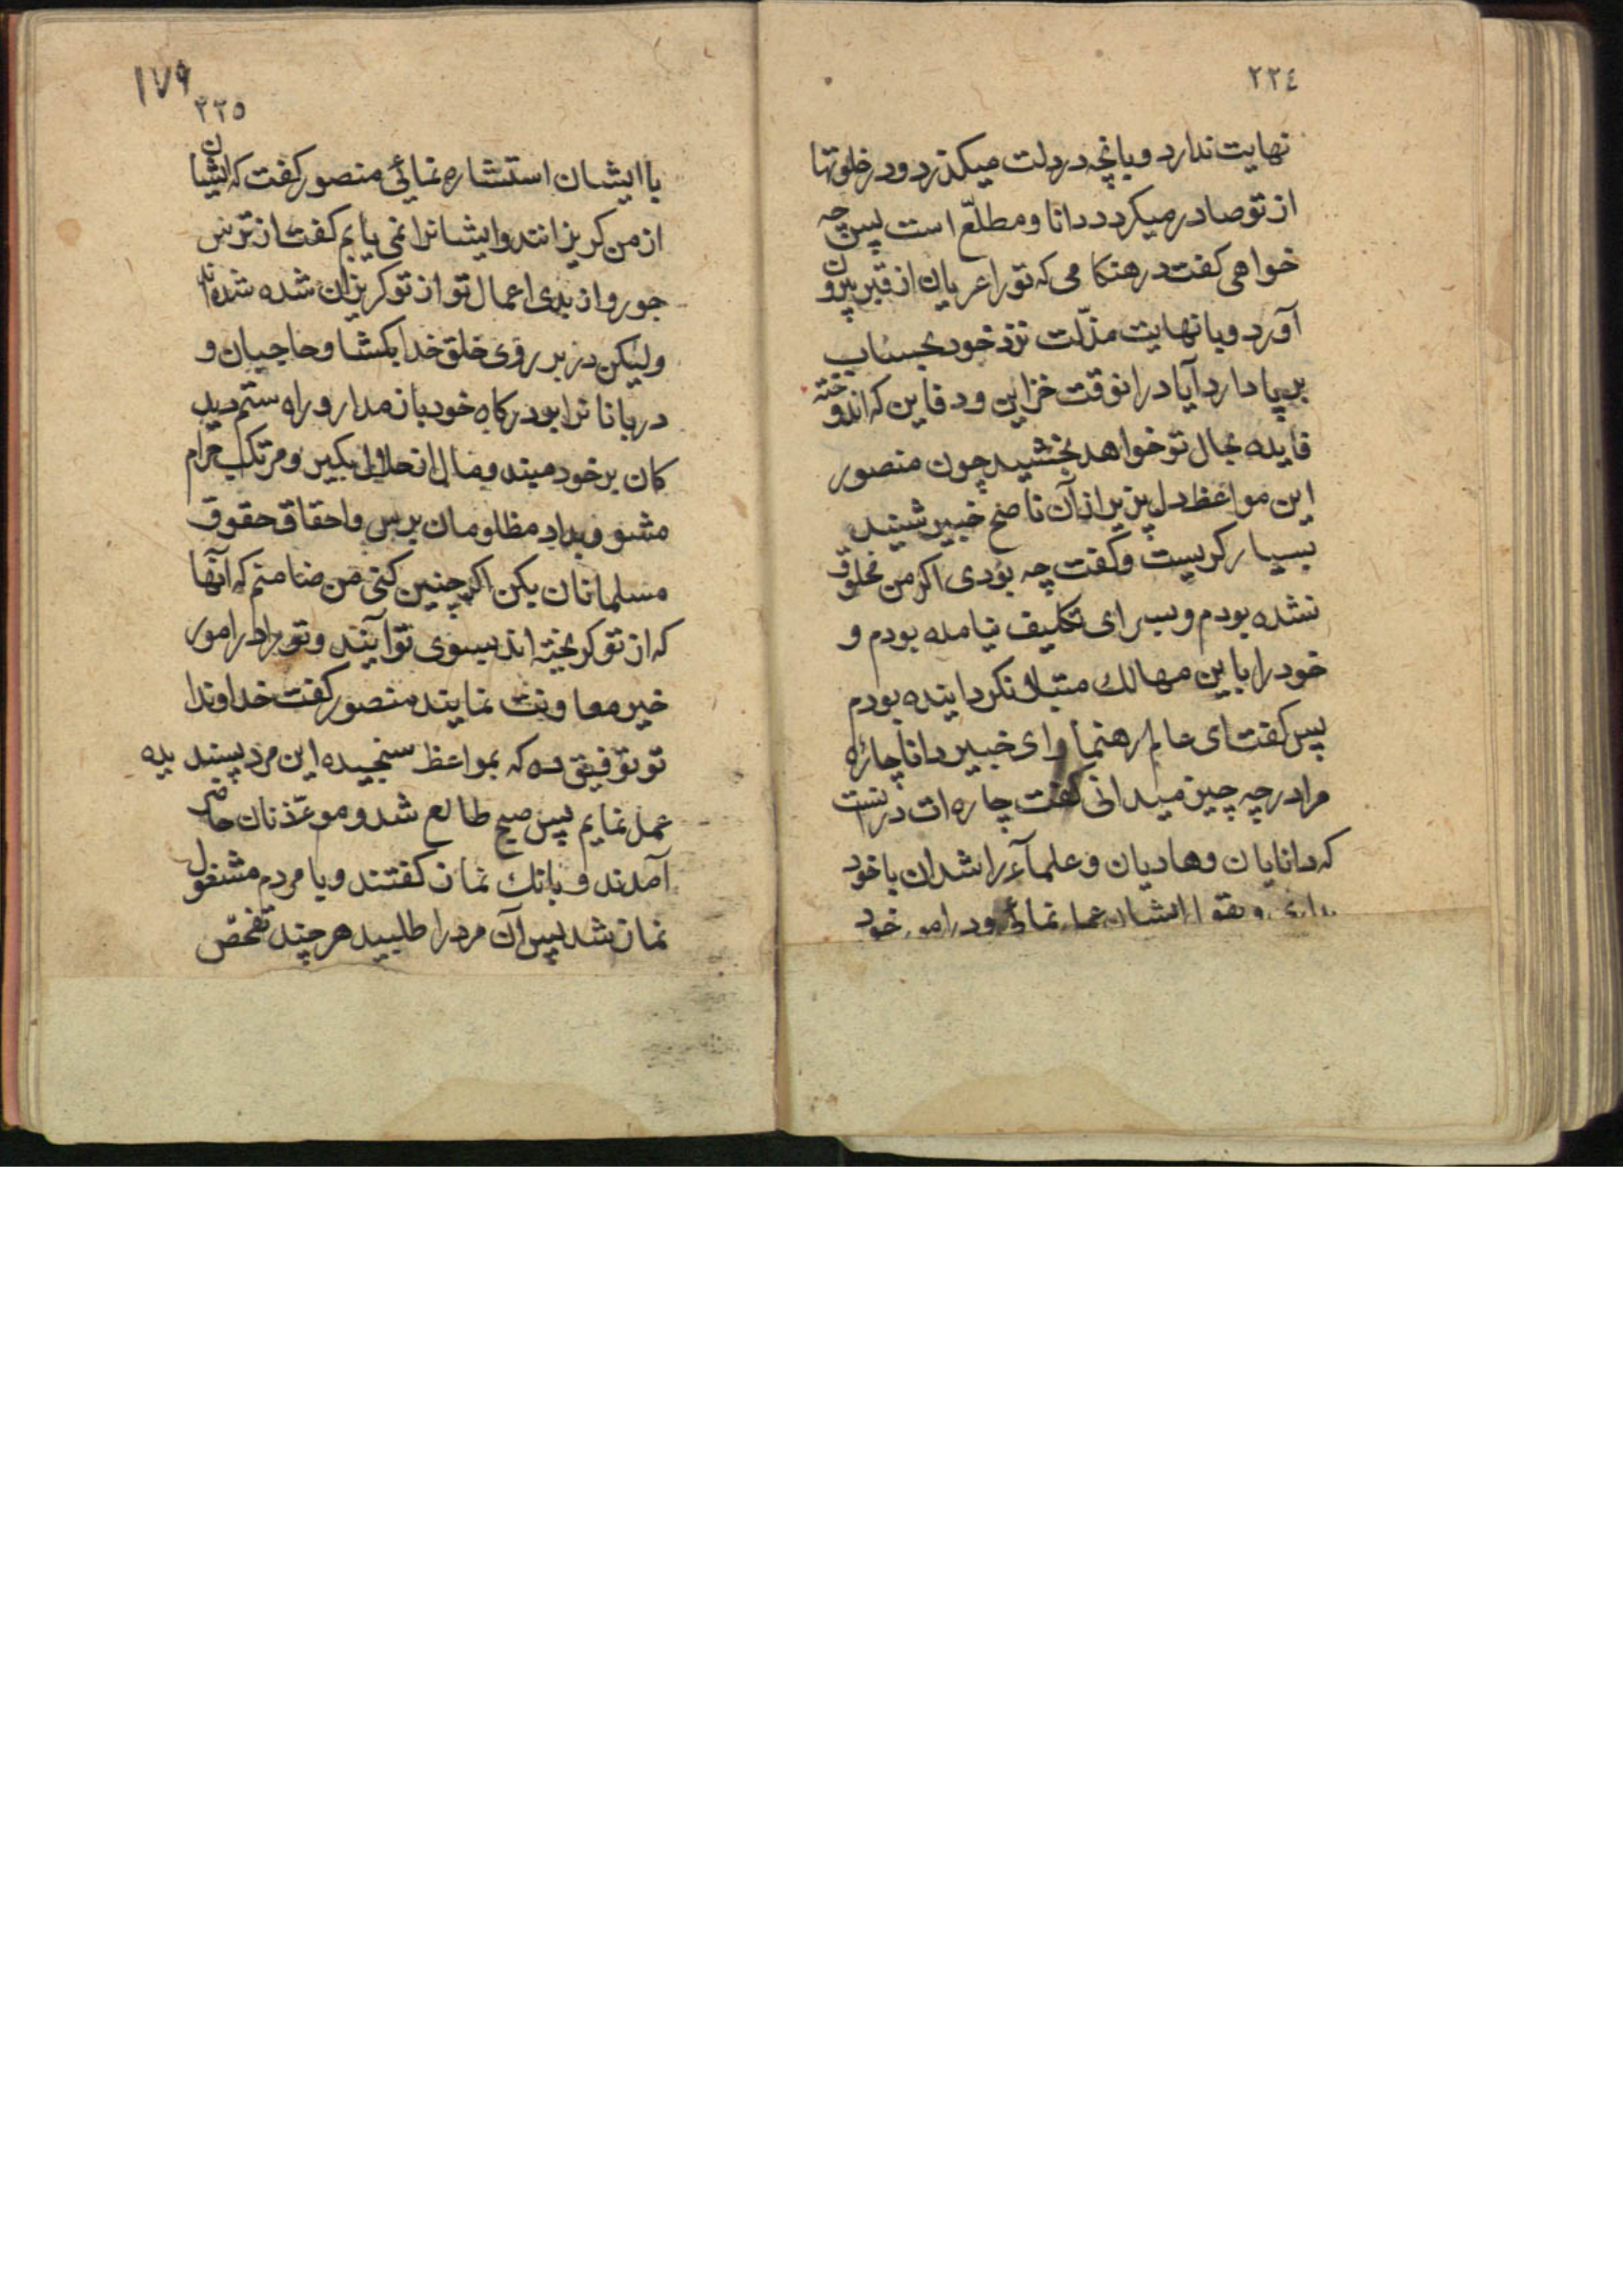 ٢٢٤
نهایت ندارد و بانچه در دلت میکذرد و در خلوتها
از تو صادر میکردد دانا و مطلّع است پس چه
خواهی کفت در هنکامی که تو را عریان از قبر بیرون
آورد و با نهایت مذلّت نزد خود بحساب
بر پا دارد آیا در انوقت خزاین و دفاین که اندوخته
فایده بحال تو خواهد بخشید چون منصور
این مواعظ دل پزیر از آن ناصح خبیر شنید
بسیار کریست و کفت چه بودی اکر من مخلوق
نشده بودم و بسرای تکلیف نیامده بودم و
خود را باین مهالک مبتلا نکردانیده بودم
پس کفت ای عالم رهنما و ای خبیر دانا چارهٔ
مرا در چه چیز میدانی کفت چاره ات در انست
که دانایان و هادیان و علمآء راشدان با خود
بداری و بقول ایشان عمل نمائی و در امور خود
١٧٩
٢٢٥
با ایشان استشاره نمائی منصور کفت که ایشان
از من کریزانند و ایشانرا نمی یابم کفت از ترس
جور و از بدی اعمال تو از تو کریزان شده شده اند
ولیکن در بر روی خلق خدا بکشا و حاجبان و
دربانانرا بودرکاه خود باز مدار و راه ستم دید
کان بر خود مبند و مال از حلال بکیر و مرتکب حرام
مشو و بداد مظلومان برس و احقاق حقوق
مسلمانان بکن اکر چنین کنی من ضامنم که آنها
که از تو کریخته اند بسوی تو آیند و تو را در امور
خیر معاونت نمایند منصور کفت خداوندا
تو توفیق ده که بمواعظ سنجیده این مرد پسندیده
عمل نمایم پس صبح طالع شد و موءذنان حاضر
آمدند و بانک نماز کفتند و با مردم مشغول
نماز شد پس آن مرد را طلبید هر چند تفحّص